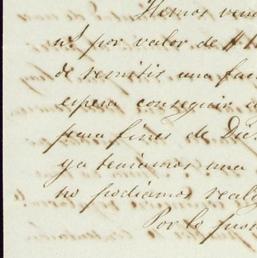 Hemos ven
as por valor de #1
de remitir una fac
espera conseguir
para fines de Dic
ya tenemos una
no podiamos realiz
Por lo